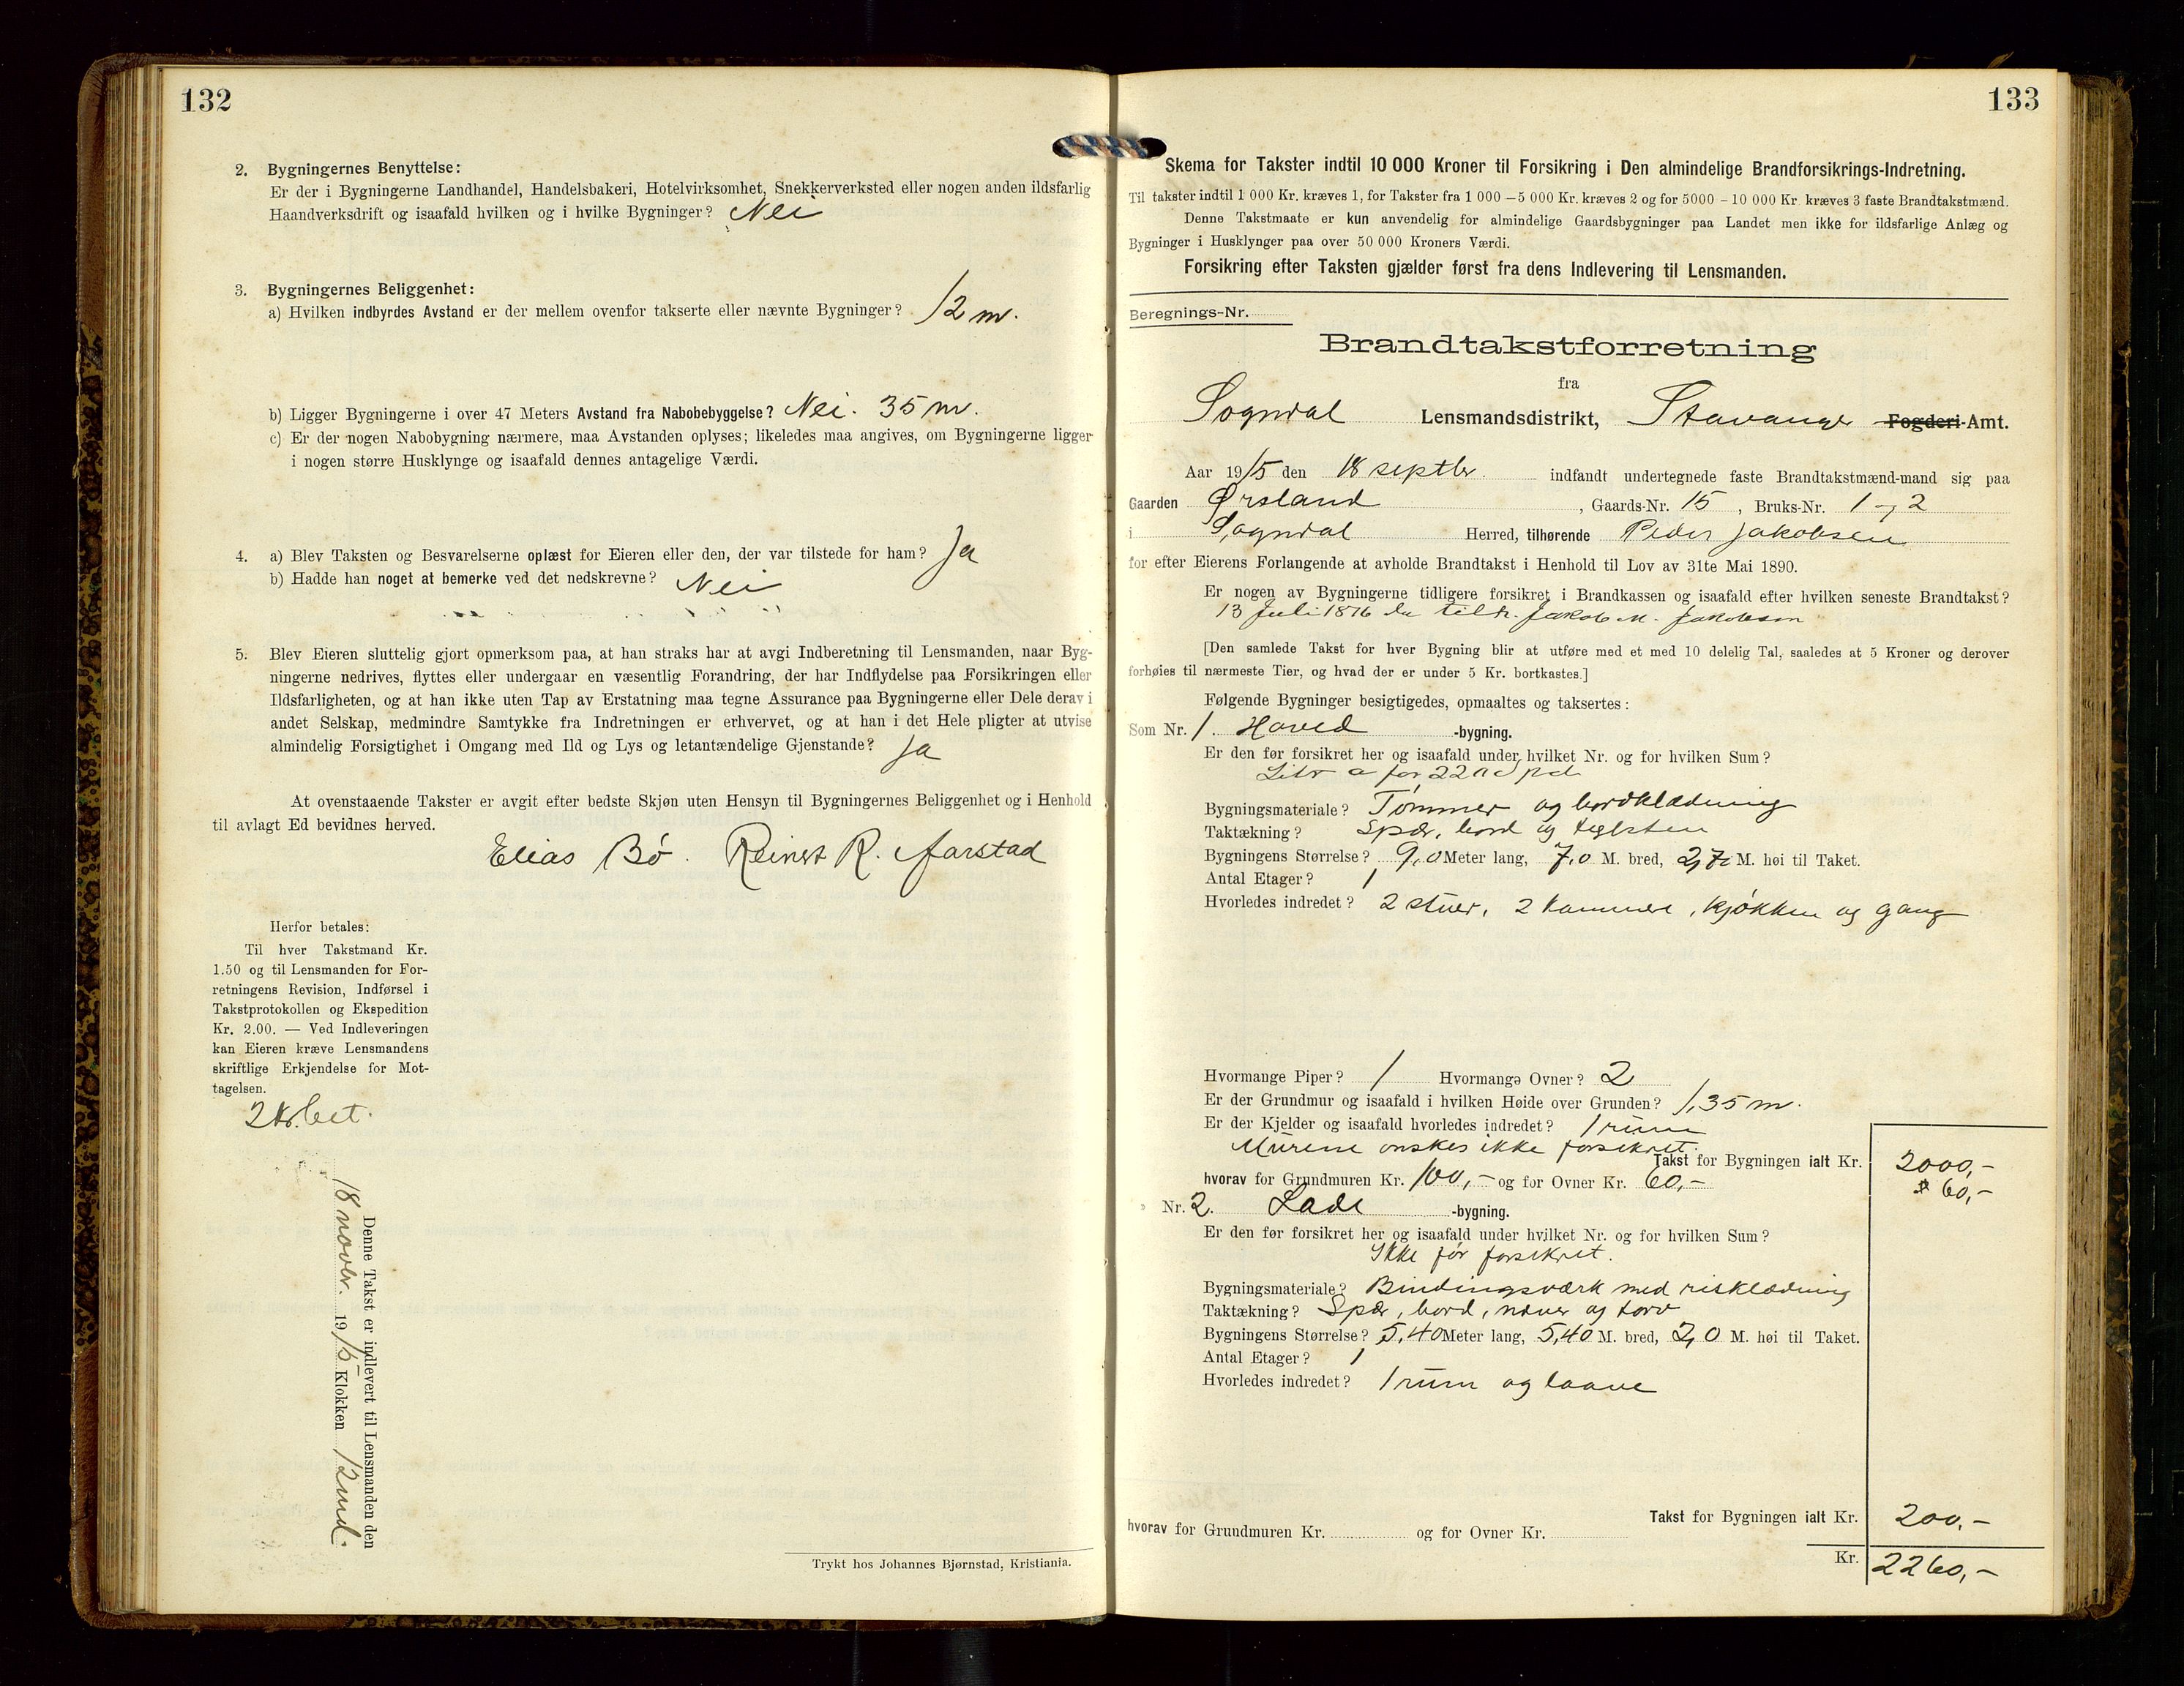 132
2. Bygningernes Benyttelse:
Er der i Bygningerne Landhandel, Handelsbakeri, Hotelvirksomhet, Snekkerverksted eller nogen anden ildsfarlig
Haandverksdrift og isaafald hvilken og i hvilke Bygninger? Nei
3. Bygningernes Beliggenhet:
a) Hvilken indbyrdes Avstand er der mellem ovenfor takserte eller nævnte Bygninger? 12 m.
b) Ligger Bygningerne i over 47 Meters Avstand fra Nabobebyggelse? Nei. 35 m.
c) Er der nogen Nabobygning nærmere, maa Avstanden oplyses; likeledes maa angives, om Bygningerne ligger
i nogen større Husklynge og isaafald dennes antagelige Værdi.
4. a) Blev Taksten og Besvarelserne oplæst for Eieren eller den, der var tilstede for ham? Ja
b) Hadde han noget at bemerke ved det nedskrevne? Nei
5. Blev Eieren sluttelig gjort opmerksom paa, at han straks har at avgi Indberetning til Lensmanden, naar Byg-
ningerne nedrives, flyttes eller undergaar en væsentlig Forandring, der har Indflydelse paa Forsikringen eller
Ildsfarligheten, og at han ikke uten Tap av Erstatning maa tegne Assurance paa Bygningerne eller Dele derav i
andet Selskap, medmindre Samtykke fra Indretningen er erhvervet, og at han i det Hele pligter at utvise
almindelig Forsigtighet i Omgang med Ild og Lys og letantændelige Gjenstande? Ja
At ovenstaaende Takster er avgit efter bedste Skjøn uten Hensyn til Bygningernes Beliggenhet og i Henhold
til avlagt Ed bevidnes herved.
Elias Bø. Reinert R. Aarstad
Herfor betales:
Til hver Takstmand Kr.
1.50 og til Lensmanden for For-
retningens Revision, Indførsel i
Takstprotokollen og Ekspedition
Kr. 2.00. — Ved Indleveringen
kan Eieren kræve Lensmandens
skriftlige Erkjendelse for Mot-
tagelsen.
2 Kr. bet.
Denne Takst er indlevert til Lensmanden den
18 novbr. 1915 Klokken 12 md.
Trykt hos Johannes Bjørnstad, Kristiania.
133
Skema for Takster indtil 10 000 Kroner til Forsikring i Den almindelige Brandforsikrings-Indretning.
Til takster indtil 1 000 Kr. kræves 1, for Takster fra 1 000 – 5 000 Kr. kræves 2 og for 5000 – 10 000 Kr. kræves 3 faste Brandtakstmænd.
Denne Takstmaate er kun anvendelig for almindelige Gaardsbygninger paa Landet men ikke for ildsfarlige Anlæg og
Bygninger i Husklynger paa over 50 000 Kroners Værdi.
Forsikring efter Taksten gjælder først fra dens Indlevering til Lensmanden.
Beregnings-Nr.
Brandtakstforretning
fra
Sogndal Lensmandsdistrikt, Stavanger Fogderi-Amt.
Aar 1915 den 18 septbr. indfandt undertegnede faste Brandtakstmænd-mand sig paa
Gaarden Ørsland, Gaards-Nr. 15, Bruks-Nr. 1 og 2
i Sogndal Herred, tilhørende Peder Jakobsen
for efter Eierens Forlangende at avholde Brandtakst i Henhold til Lov av 31te Mai 1890.
Er nogen av Bygningerne tidligere forsikret i Brandkassen og isaafald efter hvilken seneste Brandtakst?
13 Juli 1876 da tilh. Jakob M. Jakobsen
[Den samlede Takst for hver Bygning blir at utføre med et med 10 delelig Tal, saaledes at 5 Kroner og derover
forhøies til nærmeste Tier, og hvad der er under 5 Kr. bortkastes.]
Følgende Bygninger besigtigedes, opmaaltes og taksertes:
Som Nr. 1. Hoved -bygning.
Er den før forsikret her og isaafald under hvilket Nr. og for hvilken Sum?
Litr a for 220 Spd
Bygningsmateriale? Tømmer og bordklædning
Taktækning? Spær, bord og teglsten
Bygningens Størrelse? 9,0 Meter lang, 7,0 M. bred, 2,7 M. høi til Taket.
Antal Etager? 1
Hvorledes indredet? 2 stuer, 2 kammere, kjøkken og gang
Hvormange Piper? 1 Hvormange Ovner? 2
Er der Grundmur og isaafald i hvilken Høide over Grunden? 1,35 m.
Er der Kjelder og isaafald hvorledes indredet? 1 rum
Murene ønskes ikke forsikret.
Takst for Bygningen ialt Kr. 2000,-
hvorav for Grundmuren Kr. 100,- og for Ovner Kr. 60,- 60,-
Nr. 2. Lade -bygning.
Er den før forsikret her og isaafald under hvilket Nr. og for hvilken Sum?
Ikke før forsikret.
Bygningsmateriale? Bindingsværk med risklædning
Taktækning? Spær, bord, næver og torv
Bygningens Størrelse? 5,40 Meter lang, 5,40 M. bred, 2,0 M. høi til Taket.
Antal Etager? 1
Hvorledes indredet? 1 rum og laave
Takst for Bygningen ialt Kr. 200,-
hvorav for Grundmuren Kr. og for Ovner Kr.
Kr. 2260,-